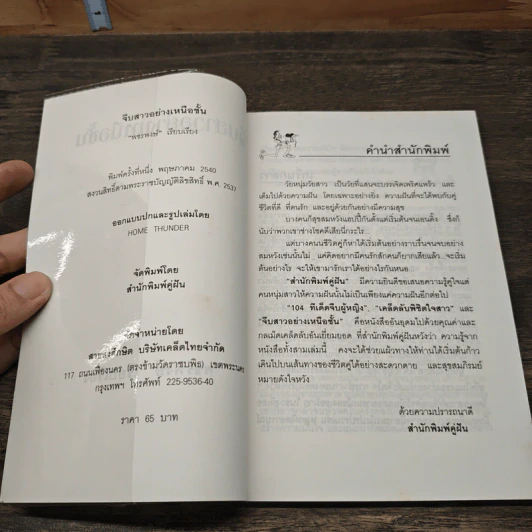 จีบสาวอย่างเหนือชั้น
"พยัพงษ์" เรียบเรียง
พิมพ์ครั้งที่หนึ่ง พฤษภาคม 2540
สงวนสิทธิ์ตามพระราชบัญญัติลิขสิทธิ์ พ.ศ 2537
ออกแบบปกและรูปเล่มโดย
HOME THUNDER
จัดพิมพ์โดย
สำนักพิมพ์คู่ฝัน
จัดจำหน่ายโดย
บริษัทเคล็ดไทยจำกัด
117 ถนนเฟื่องนคร (ตรงข้ามวัดราชบพิธ) เขตพระนคร
กรุงเทพฯ โทรศัพท์ 225-9536-40
ราคา 65 บาท
คำนำสำนักพิมพ์
วัยหนุ่มวัยสาว เป็นวัยที่แสนจะบรรเจิดเพริศแพร้ว และ
เต็มไปด้วยความฝัน โดยเฉพาะอย่างยิ่ง ความฝันที่จะได้พบกับคู่
ชีวิตที่ดี ที่คนรัก และอยู่ด้วยกันอย่างมีความสุข
บางคนก็สุขสมหวังแฮปปี้กันตั้งแต่เริ่มต้นจนเอนดิ้ง ซึ่งก็
นับว่าพวกเขาช่างโชคดีเสียนี่กระไร...
แต่บางคนนชีวิตคู่ก็หาได้เริ่มต้นอย่างราบรื่นจนจบอย่าง
สมหวังเช่นนั้นไม่ แค่คิดอยากมีคนรักสักคนก็ยากเสียแล้ว จะเริ่ม
ต้นอย่างไร จะให้เขามารักเราได้อย่างไรกันหนอ...
"สำนักพิมพ์คู่ฝัน" มีความยินดีขอเสนอความรู้คู่ใจแด่
คนหนุ่มสาวให้ความฝันนั้นไม่เป็นเพียงแค่ความฝันอีกต่อไป
"104 ทีเด็ดจีบผู้หญิง", "เคล็ดลับพิชิตใจสาว" และ
"จีบสาวอย่างเหนือชั้น" คือหนังสืออันอุดมไปด้วยคุณค่าและ
กลเม็ดเคล็ดลับอันเยี่ยมยอด ที่สำนักพิมพ์คู่ฝันหวังว่า ความรู้จาก
หนังสือทั้งสามเล่มนี้ คงจะได้ช่วยแผ้วทางให้ท่านได้เริ่มต้นก้าว
เดินไปบนเส้นทางของชีวิตคู่ได้อย่างสะดวกดาย และสุขสมภิรมย์
หมายดังใจหวัง
ด้วยความปรารถนาดี
สำนักพิมพ์คู่ฝัน